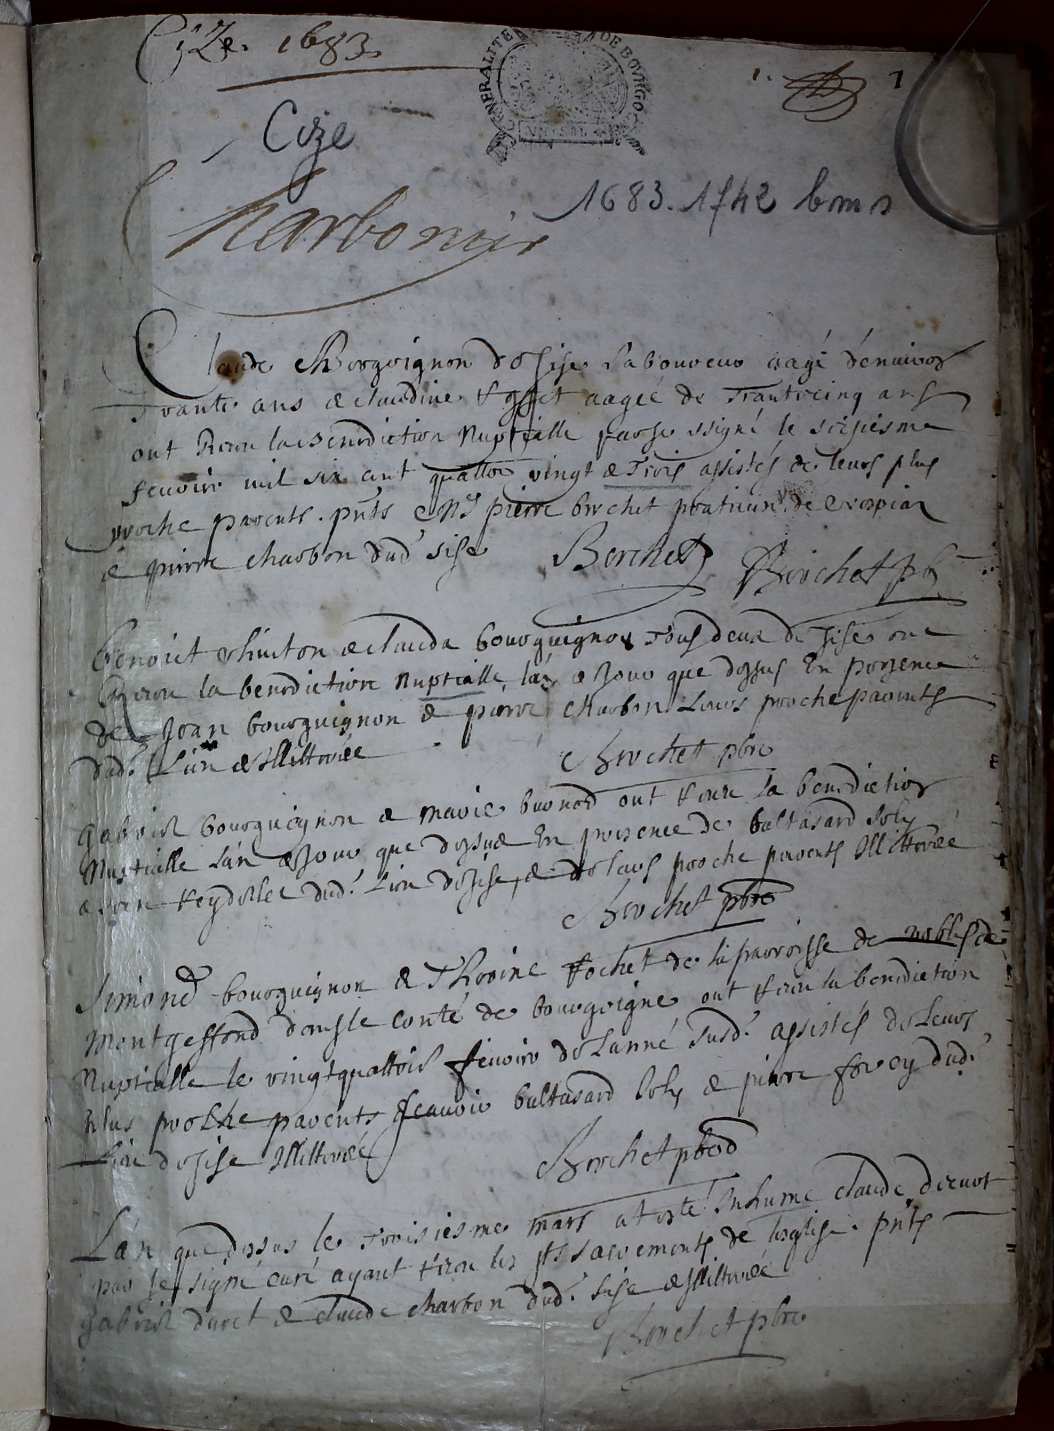 Cize. 1683.
GENERALITE DE BOURGO
1. 1
Cize
1683. 1742 bms
Charbonnier
Claude Borguignon de Sise Laboureur aagé denuiron
trante ans & claudine aagée de Trantecinq ans
ont Receu la Benediction Nuptialle par le ssigné le seisiesme
feuvrier mil six cent quattre vingt & Trois assistés de leurs plus
proche parents. pnts Mre pierre brechet pratitien de
& pierre charbon dud. sise Berchet Berchet pbr
benoict & clauda bourguignon tous deux de sise ont
Receu la benediction nuptialle lan & Jour que dessus En presence
de Jean bourguignon & pierre charbon Leurs proche parents
dud. Lieu & Illitterée Berchet pbre
gabriel bourguignon & marie buonod ont Receu la benediction
Nuptialle Lan & Jour que dessus En presence de baltasard Joly
& Jean dud. Lieu de sise, & de leurs proche parents Illitterée
Berchet pbre
Simond bourguignon & Thorine fochet de la parroisse de
montgeffond dans le conté de bourgoigne ont Receu la benediction
Nuptialle le vingtquattre feuvrier de Lanné susd. assistés de Leurs
plus proche parents scauoir baltasard Joly & pierre dud.
Lieu de sise Illitterée Berchet pbre
L'an que dessus le troisiesme mars a esté Inhumé claude
par le signé curé ayant receu les sts sacrements de leglise. pnts
gabriel & claude charbon dud. sise & Illitterée
Berchet pbre